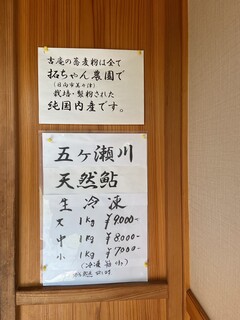 古庵の蕎麦粉は全て
拓ちゃん農園で
(日向市美々津)
栽培・製粉された
純国内産です。
五ヶ瀬川
天然鮎
生 冷凍
大 1kg ¥9000-
中 1kg ¥8000-
小 1kg ¥7000-